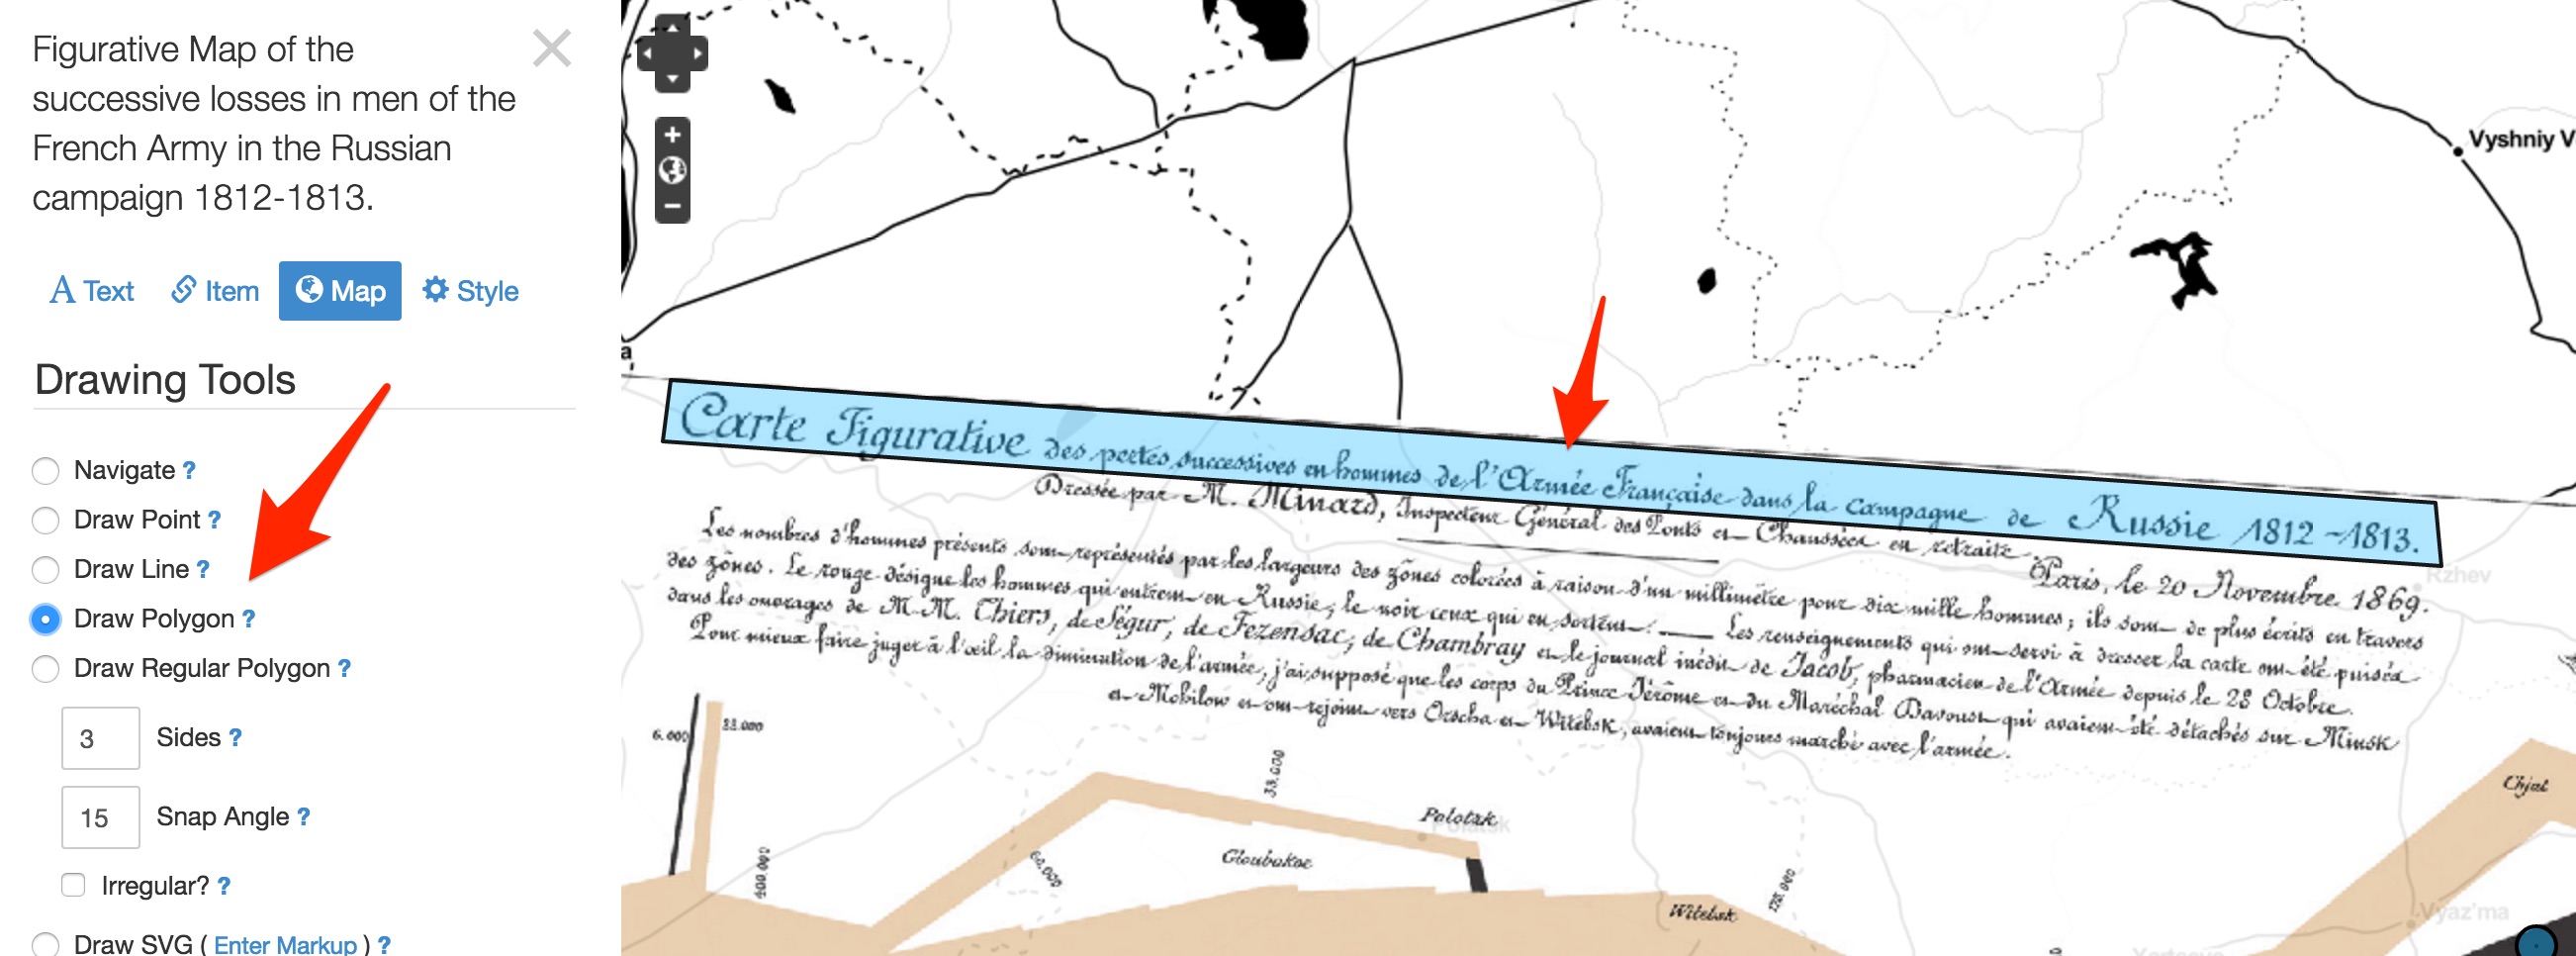 Figurative Map of the
successive losses in men of the
French Army in the Russian
campaign 1812-1813.
Text Item Map Style
Drawing Tools
Navigate ?
Draw Point ?
Draw Line ?
Draw Polygon ?
Draw Regular Polygon ?
3 Sides ?
15 Snap Angle ?
Irregular? ?
Draw SVG ( Enter Markup ) ?
Vyshniy V
a
Carte Figurative des pertes successives en hommes de l'Armée Française dans la campagne de Russie 1812-1813.
Dressée par M. Minard, Inspecteur Général des Ponts et Chaussées en retraite.
Paris, le 20 Novembre 1869.
Les nombres d'hommes présents sont représentés par les largeurs des zônes colorées à raison d'un millimètre pour dix mille hommes; ils sont de plus écrits en travers
des zônes. Le rouge désigne les hommes qui entrent en Russie, le noir ceux qui en sortent. — Les renseignements qui ont servi à dresser la carte ont été puisés
dans les ouvrages de M.M. Thiers, de Ségur, de Fezensac, de Chambray et le journal inédit de Jacob, pharmacien de l'Armée depuis le 28 Octobre.
Pour mieux faire juger à l'œil la diminution de l'armée, j'ai supposé que les corps du Prince Jérôme et du Maréchal Davoust qui avaient été détachés sur Minsk
et Mohilow et ont rejoint vers Orscha et Witebsk, avaient toujours marché avec l'armée.
Rzhev
6.000
33.000
400.000
60.000
33.000
Polotzk
Polatsk
Gloubokoe
Witebsk
Chjat
Vyaz'ma